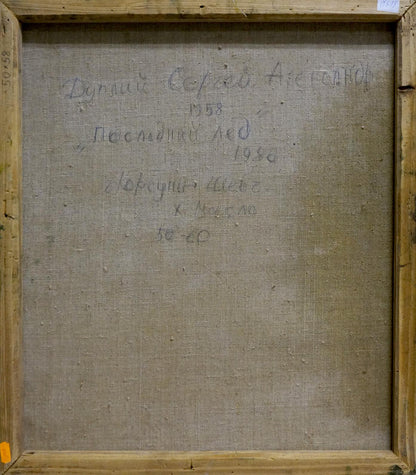 Дуплий Сергей Александр
1958
"Последний лед
1980
Корсунь-Шевч.
х. масло
50-60
50-58